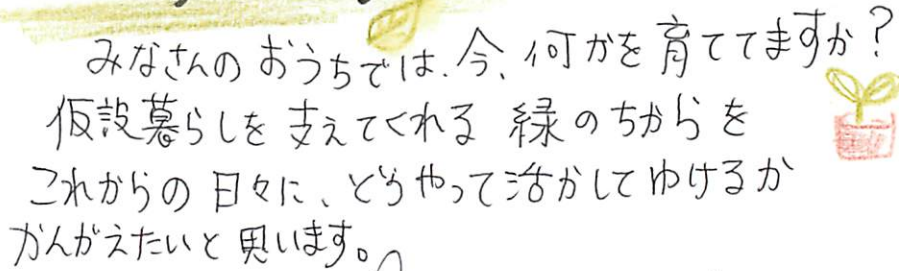 みなさんの おうちでは、今、何かを育ててますか？
仮設暮らしを 支えてくれる 緑のちからを
これからの 日々に、どうやって活かしてゆけるか
かんがえたいと思います。